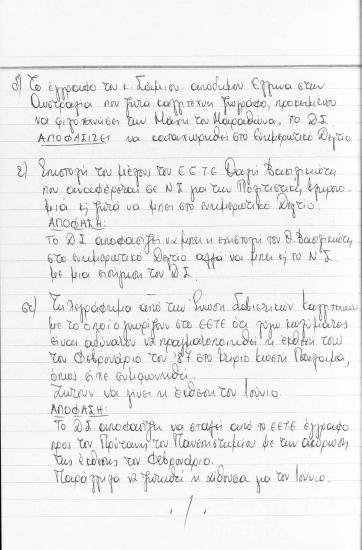 δ) Το έγγραφο του κ. Σάμιου αποδήμου Έλληνα στην
Αυστραλία που ζητά καλλιτέχνη ζωγράφο, προκειμένου
να φιλοτεχνήσει την Μάχη του Μαραθώνα, το ΔΣ
ΑΠΟΦΑΣΙΖΕΙ να καταχωρηθεί στο ενημερωτικό Δελτίο
ε) Επιστολή του μέλους του ΕΕΤΕ Θαλή Βασιλικιώτη
που αναφέρεται σε Ν.Σ. για την Πολιτιστική κληρονο-
μιά κ ζητά να μπει στο ενημερωτικό Δελτίο.
ΑΠΟΦΑΣΗ:
Το Δ.Σ. αποφασίζει να μπει η επιστολή του Θ. Βασιλικιώτη
στο ενημερωτικό Δελτίο αλλά να μπει κ το Ν.Σ.
με μια εισήγηση του Δ.Σ.
στ) Τηλεγράφημα από την Ένωση Σοβιετικών Καλλιτεχνών
με το οποίο γνωρίζουν στο ΕΕΤΕ ότι λόγω κωλύματος
είναι αδύνατον να πραγματοποιηθεί η έκθεσή τους
τον Φεβρουάριο του '87 στο κτίριο Κωστή Παλαμά,
όπως είχε συμφωνηθεί.
Ζητούν να γίνει η έκθεση τον Ιούνιο.
ΑΠΟΦΑΣΗ:
Το Δ.Σ. αποφασίζει να σταλεί από το ΕΕΤΕ έγγραφο
προς τον Πρύτανη του Πανεπιστημίου με την ακύρωση
της έκθεσης του Φεβρουαρίου.
Παράλληλα να ζητηθεί η αίθουσα για τον Ιούνιο.
./.